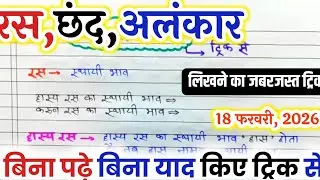 रस,छंद,अलंकार
ट्रिक से
रस → स्थायी भाव
लिखने का जबरजस्त ट्रिक
हास्य रस का स्थायी भाव ⇒
करुन रस का स्थायी भाव ⇒
18 फरवरी, 2026
हास्य रस → हास्य रस का स्थायी भाव 'हास' होता
बिना पढ़े बिना याद किए ट्रिक से